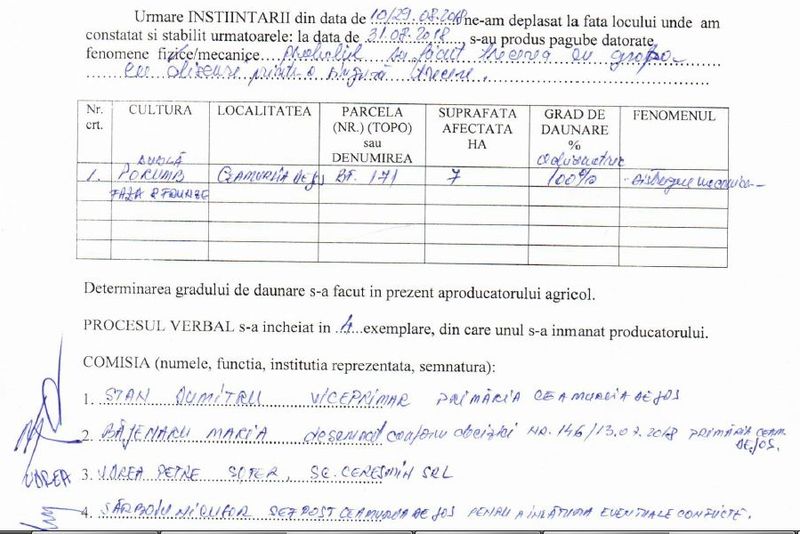 Urmare INSTIINTARII din data de 10/29.08.2018 ne-am deplasat la fata locului unde am
constatat si stabilit urmatoarele: la data de 31.08.2018, s-au produs pagube datorate
fenomene fizice/mecanice probabil s-a facut trecerea cu grapa
cu discuri printr-o singura trecere.
Nr. crt. CULTURA LOCALITATEA PARCELA (NR.) (TOPO) sau DENUMIREA SUPRAFATA AFECTATA HA GRAD DE DAUNARE % FENOMENUL
DUBLĂ
1. PORUMB CEAMURLIA DE JOS BF. 171 7 100% distrugere mecanica
FAZA 2 FRUNZE
Determinarea gradului de daunare s-a facut in prezent aproducatorului agricol.
PROCESUL VERBAL s-a incheiat in 4 exemplare, din care unul s-a inmanat producatorului.
COMISIA (numele, functia, institutia reprezentata, semnatura):
1. STAN DUMITRU VICEPRIMAR PRIMĂRIA CEAMURLIA DE JOS
2. BĂJENARU MARIA desemnat conform deciziei NR. 146/13.07.2018 PRIMĂRIA CEAM. DE JOS.
VOREA
3. VOREA PETRE SOFER, SC. CERESMIN SRL
4. SÂRBOIU NICUFOR SEF POST CEAMURLIA DE JOS PENTRU A INLĂTURA EVENTUALE CONFLICTE.